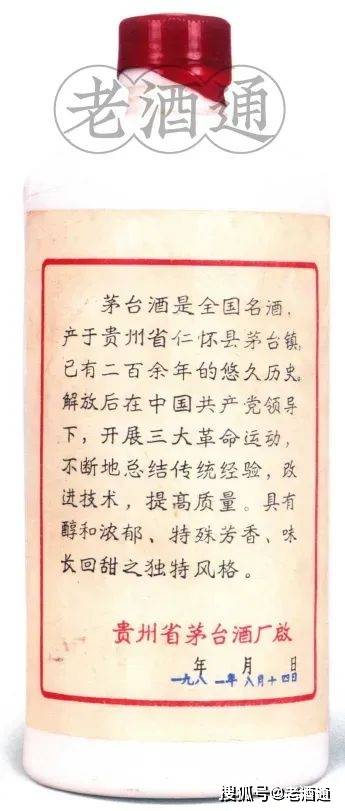 老酒通
茅台酒是全国名酒,
产于贵州省仁怀县茅台镇,
已有二百余年的悠久历史。
解放后在中国共产党领导
下,开展三大革命运动,
不断地总结传统经验,改
进技术,提高质量。具有
醇和浓郁、特殊芳香、味
长回甜之独特风格。
贵州省茅台酒厂啟
年 月 日
一九八一年八月十四日
搜狐号@老酒通